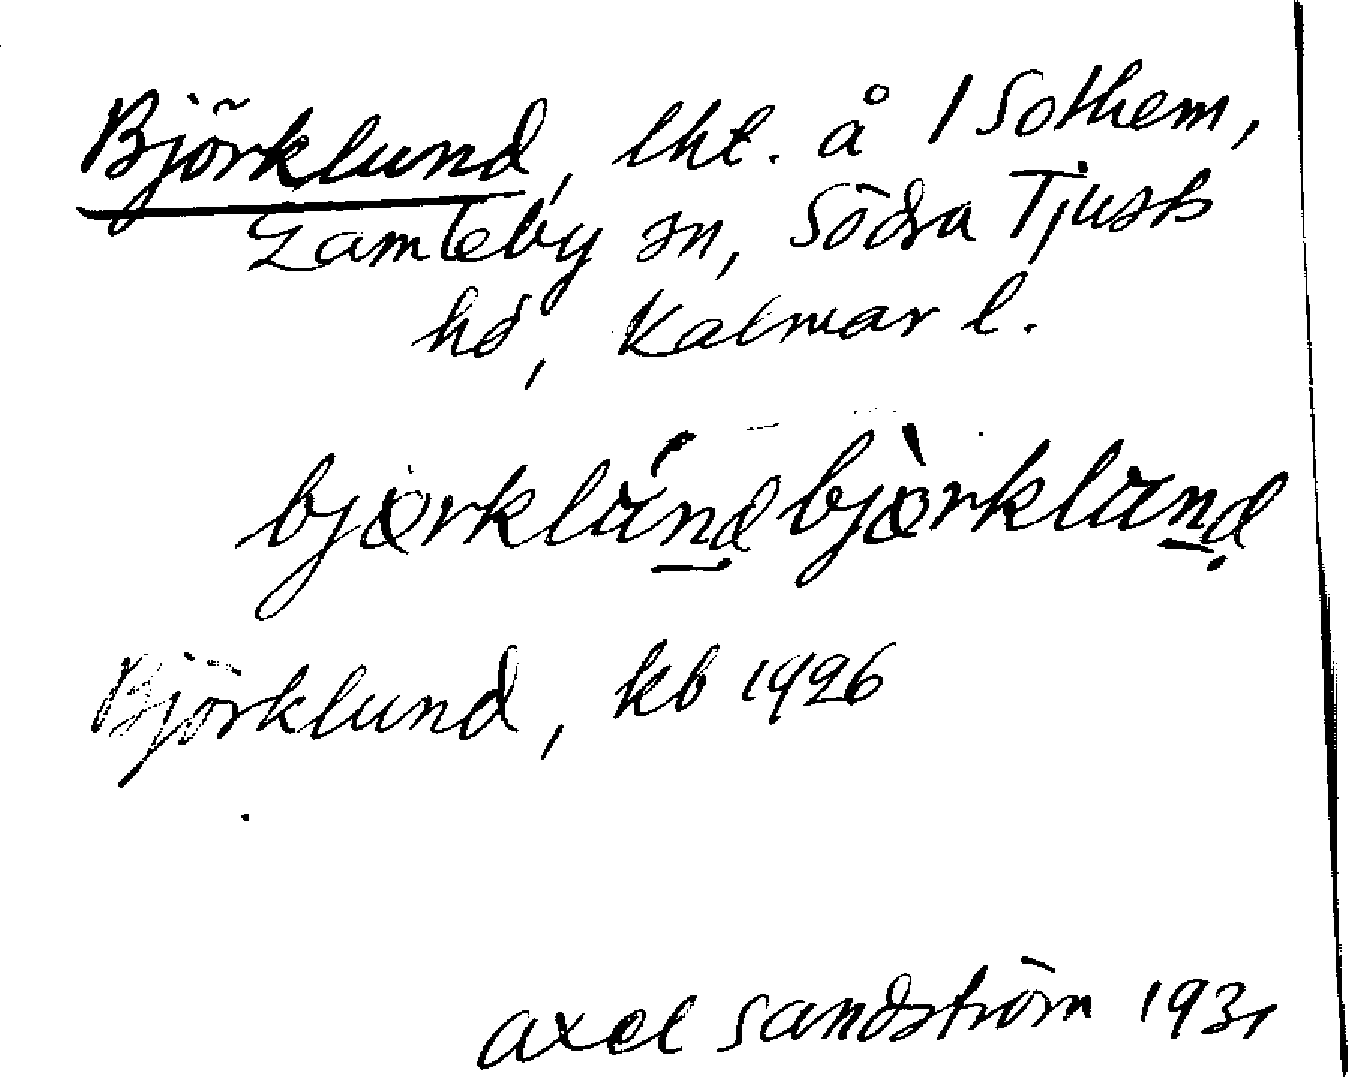 Björklund, lht. å 1 Solhem,
Gamleby sn, Södra Tjusts
hd, Kalmar l.
björklúnd bjòrklund
Björklund, kb 1926
Axel Sandström 1931